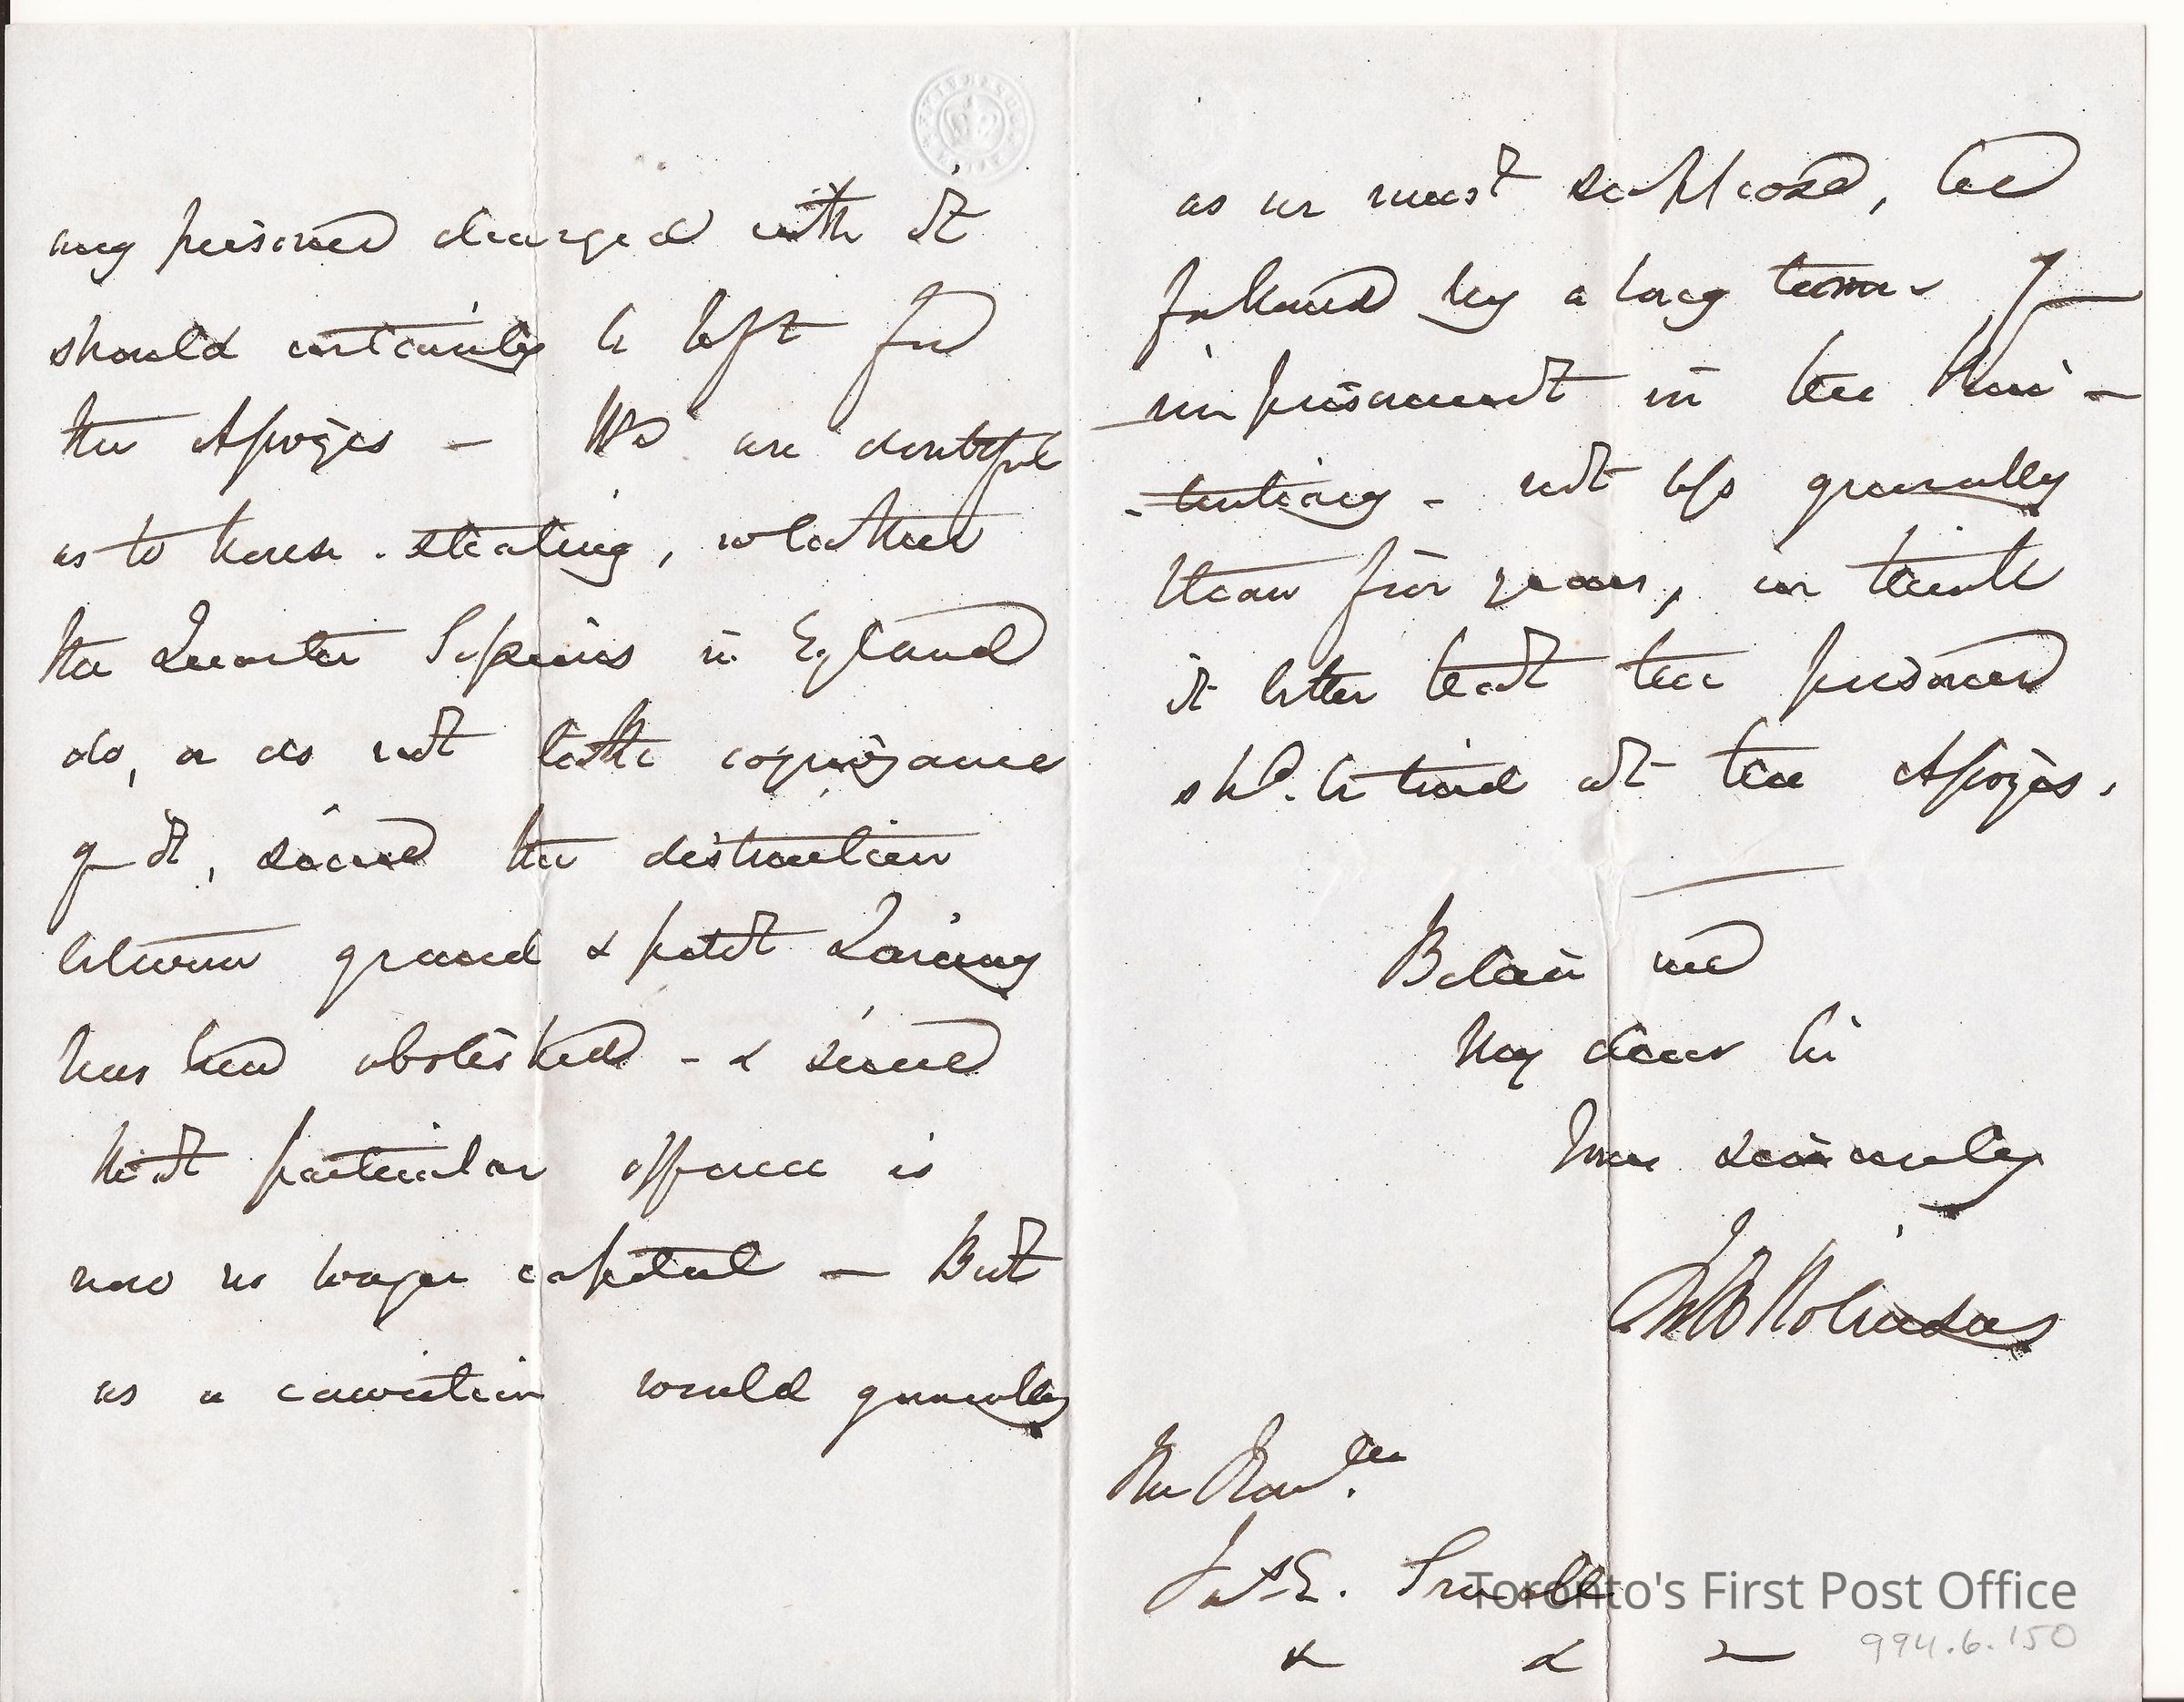 any prisoner charged with it
should certainly be left for
the Assizes — We are doubtful
as to horse-stealing, whether
the Quarter Sessions in England
do, or do not take cognizance
of it, since the distinction
between grand & petit Larceny
has been abolished - & since
that particular offence is
now no longer capital — But
as a conviction would generally
as we must suppose, be
followed by a long term of
imprisonment in the Peni-
-tentiary - not less generally
than five years, we think
it better that the prisoner
shd. be tried at the Assizes.
Believe me
My dear Sir
Yours sincerely
Jno B Robinson
The Honble
Jas E. Small
& & &
Toronto's First Post Office
994.6.150